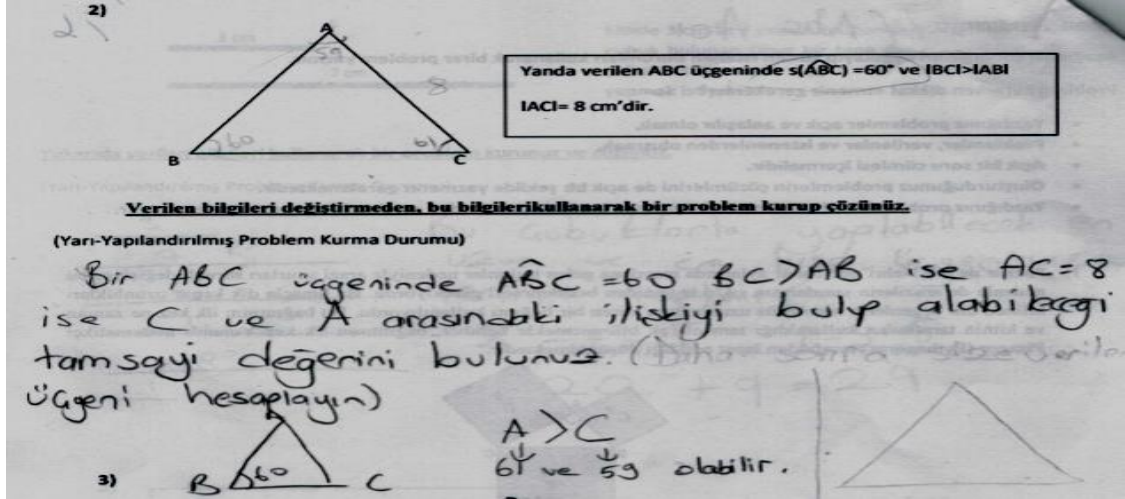 2)
2)
A
59
8
60
61
B
C
Yanda verilen ABC üçgeninde s(ABC) =60° ve IBCI>IABI
IACI= 8 cm'dir.
Verilen bilgileri değiştirmeden, bu bilgilerikullanarak bir problem kurup çözünüz.
(Yarı-Yapılandırılmış Problem Kurma Durumu)
Bir ABC üçgeninde ABC =60 BC>AB ise AC=8
ise C ve A arasındaki ilişkiyi bulp alabileceği
tamsayi değerini bulunuz. (Daha sonra size verilen
üçgeni hesaplayın)
A
A>C
B 60 C
61 ve 59 olabilir.
3)